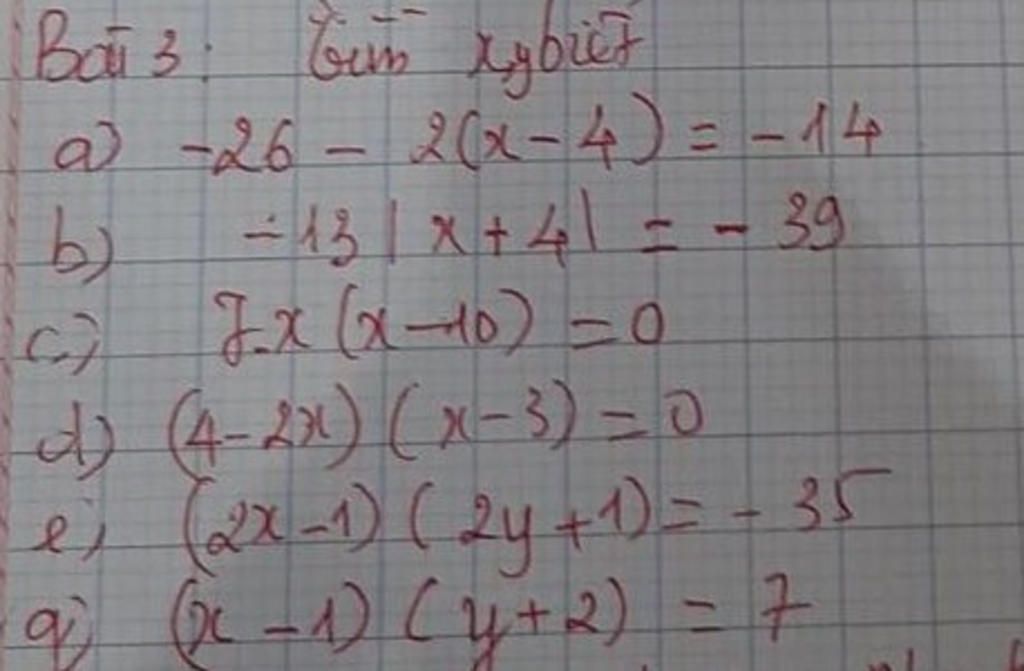 Bài 3: Tìm x,y biết
a) -26 - 2(x-4) = -14
b) -13|x+4| = -39
c) 7.x(x-10) = 0
d) (4-2x)(x-3) = 0
e) (2x-1)(2y+1) = -35
g) (x-1)(y+2) = 7